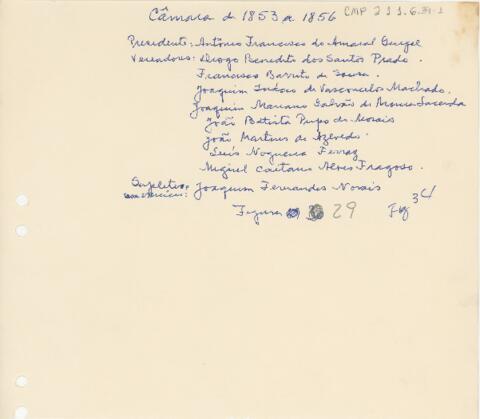 Câmara de 1853 a 1856 CMP 2.1.1.6.34-1
Presidente: Antônio Francisco do Amaral Gurgel
Vereadores: Diogo Benedito dos Santos Prado.
Francisco Barreto de Sousa.
Joaquim Inácio de Vasconcelos Machado.
Joaquim Mariano Galvão de Moura Lacerda
João Batista Pupo de Morais
João Martins de Azevedo.
Luís Nogueira Ferraz
Miguel Caetano Alves Fragoso.
Supletivo, Joaquim Fernandes Novais
em exercício:
Figura 29 Fig 34